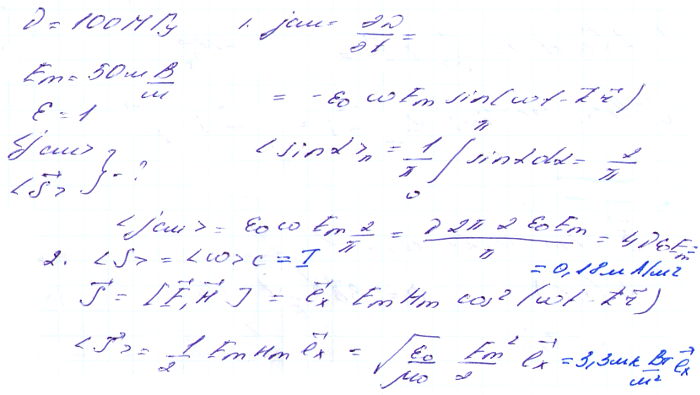 ν = 100 МГц 1. jсм = ∂D/∂t =
Em = 50 м В/м = -ε₀ ω Em sin(ωt - k⃗ r⃗)
ε = 1
<jсм>
<S⃗> } - ? <sin α>ₙ = 1/π ∫₀^π sin α dα = 2/π
<jсм> = ε₀ ω Em 2/π = ν 2π 2 ε₀ Em / π = 4 ν ε₀ Em =
= 0,18 м А/м²
2. <S> = <ω> c = I
S⃗ = [E⃗, H⃗] = e⃗x Em Hm cos² (ωt - k⃗ r⃗)
<S⃗> = 1/2 Em Hm e⃗x = √(ε₀/μ₀) Em²/2 e⃗x = 3,3 мк Вт/м² e⃗x